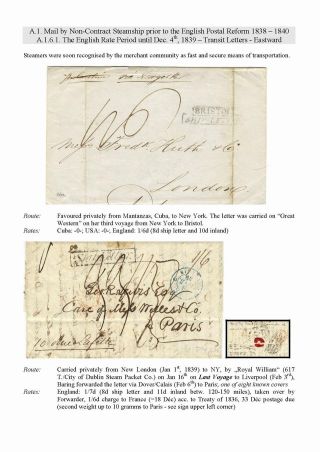 A.1. Mail by Non-Contract Steamship prior to the English Postal Reform 1838 – 1840
A.1.6.1. The English Rate Period until Dec. 4th, 1839 – Transit Letters - Eastward
Steamers were soon recognised by the merchant community as fast and secure means of transportation.
BRISTOL
SHIP LETTER
Messrs Fredk Huth & Co
London
Route: Favoured privately from Mantanzas, Cuba, to New York. The letter was carried on “Great
Western” on her third voyage from New York to Bristol.
Rates: Cuba: -0-; USA: -0-; England: 1/6d (8d ship letter and 10d inland)
1/6
Esq
Care of Messrs Welles & Co
Paris
Route: Carried privately from New London (Jan 1st, 1839) to NY, by „Royal William“ (617
T./City of Dublin Steam Packet Co.) on Jan 16th on Last Voyage to Liverpool (Feb 3rd),
Baring forwarded the letter via Dover/Calais (Feb 6th) to Paris, one of eight known covers
Rates: England: 1/7d (8d ship letter and 11d inland betw. 120-150 miles), taken over by
Forwarder, 1/6d charge to France (=18 Déc) acc. to Treaty of 1836, 33 Déc postage due
(second weight up to 10 grams to Paris - see sign upper left corner)